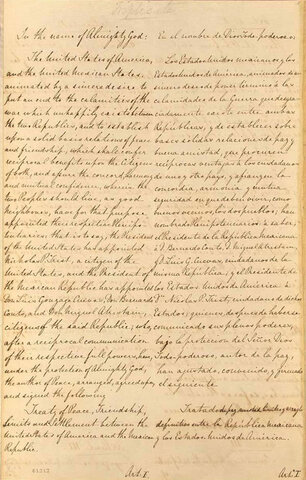 In the name of Almighty God:
The United States of America,
and the United Mexican States,
animated by a sincere desire to
put an end to the calamities of the
war which unhappily exists between
the two Republics, and to establish
upon a solid basis relations of peace
and friendship, which shall confer
reciprocal benefits upon the citizens
of both, and assure the concord, harmony
and mutual confidence, wherein the
two Peoples should live, as good
Neighbours, have for that purpose
appointed their respective Plenipo-
tentiaries, that is to say, the President
of the United States has appointed
Nicholas P. Trist, a citizen of the
United States, and the President of
the Mexican Republic has appointed
Don Luis Gonzaga Cuevas, Don Bernardo
Couto, and Don Miguel Atristain,
citizens of the said Republic; who,
after a reciprocal communication
of their respective full powers, have,
under the protection of Almighty God,
the author of Peace, arranged, agreed upon,
and signed the following
Treaty of Peace, Friendship,
Limits and Settlement between the
United States of America and the Mexican
Republic.
Art. I.
En el nombre de Dios Todopoderoso
Los Estados Unidos mexicanos y los
Estados Unidos de América, animados de un
sincero deseo de poner término á las
calamidades de la Guerra que desgra-
ciadamente existe entre ambas
Repúblicas, y de establecer sobre
bases sólidas relaciones de paz y
buena amistad, que procuren
recíprocas ventajas á los ciudadanos
de uno y otro pays, y afianzen la
concordia, armonía y mutua
seguridad en que deben vivir, como
buenos vecinos, los dos pueblos; han
nombrado
el Presidente de la República Mexicana
á D. Bernardo Couto, D. Miguel Atristain
y D. Luis G. Cuevas, ciudadanos de la
misma República; y el Presidente de
los Estados Unidos de América á
D. Nicolas P. Trist, ciudadano de dichos
Estados; quienes, después de haberse
comunicado sus plenos poderes,
bajo la protección del Señor Dios
Todo poderoso, autor de la paz,
han ajustado, convenido, y firmado
el siguiente
Tratado de paz, amistad, límites y arreglo
definitivo entre la República Mexicana
y los Estados Unidos de América.
Art. I